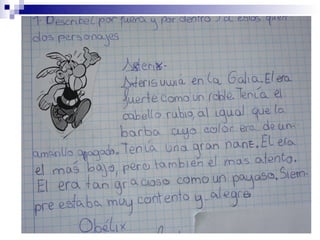 1 Describe por fuera y por dentro a estos
dos personajes
Asterix.
Asteris vivia en la Galia. El era
fuerte como un roble. Tenía el
cabello rubio, al igual que la
barba cuyo color era de un
amarillo apagado. Tenía una gran nariz. El era
el mas bajo, pero también el mas atento.
El era tan gracioso como un payaso. Siem-
pre estaba muy contento y alegre
Obélix